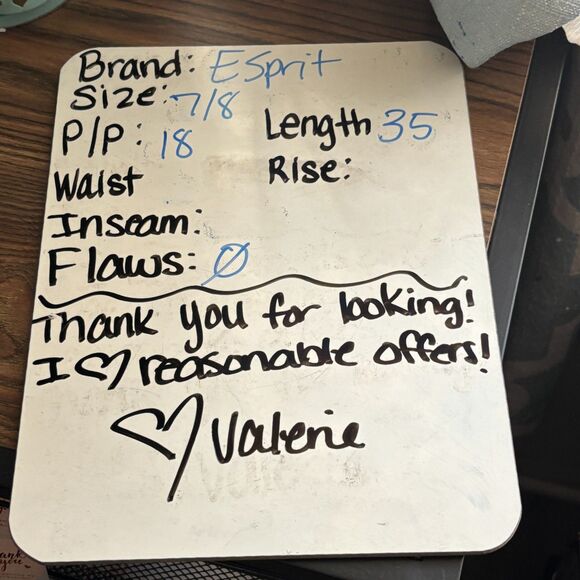 Brand: ESprit
Size: 7/8
P/P: 18 Length 35
Waist Rise:
Inseam:
Flaws: Ø
Thank you for looking!
I ♡ reasonable offers!
♡ Valerie